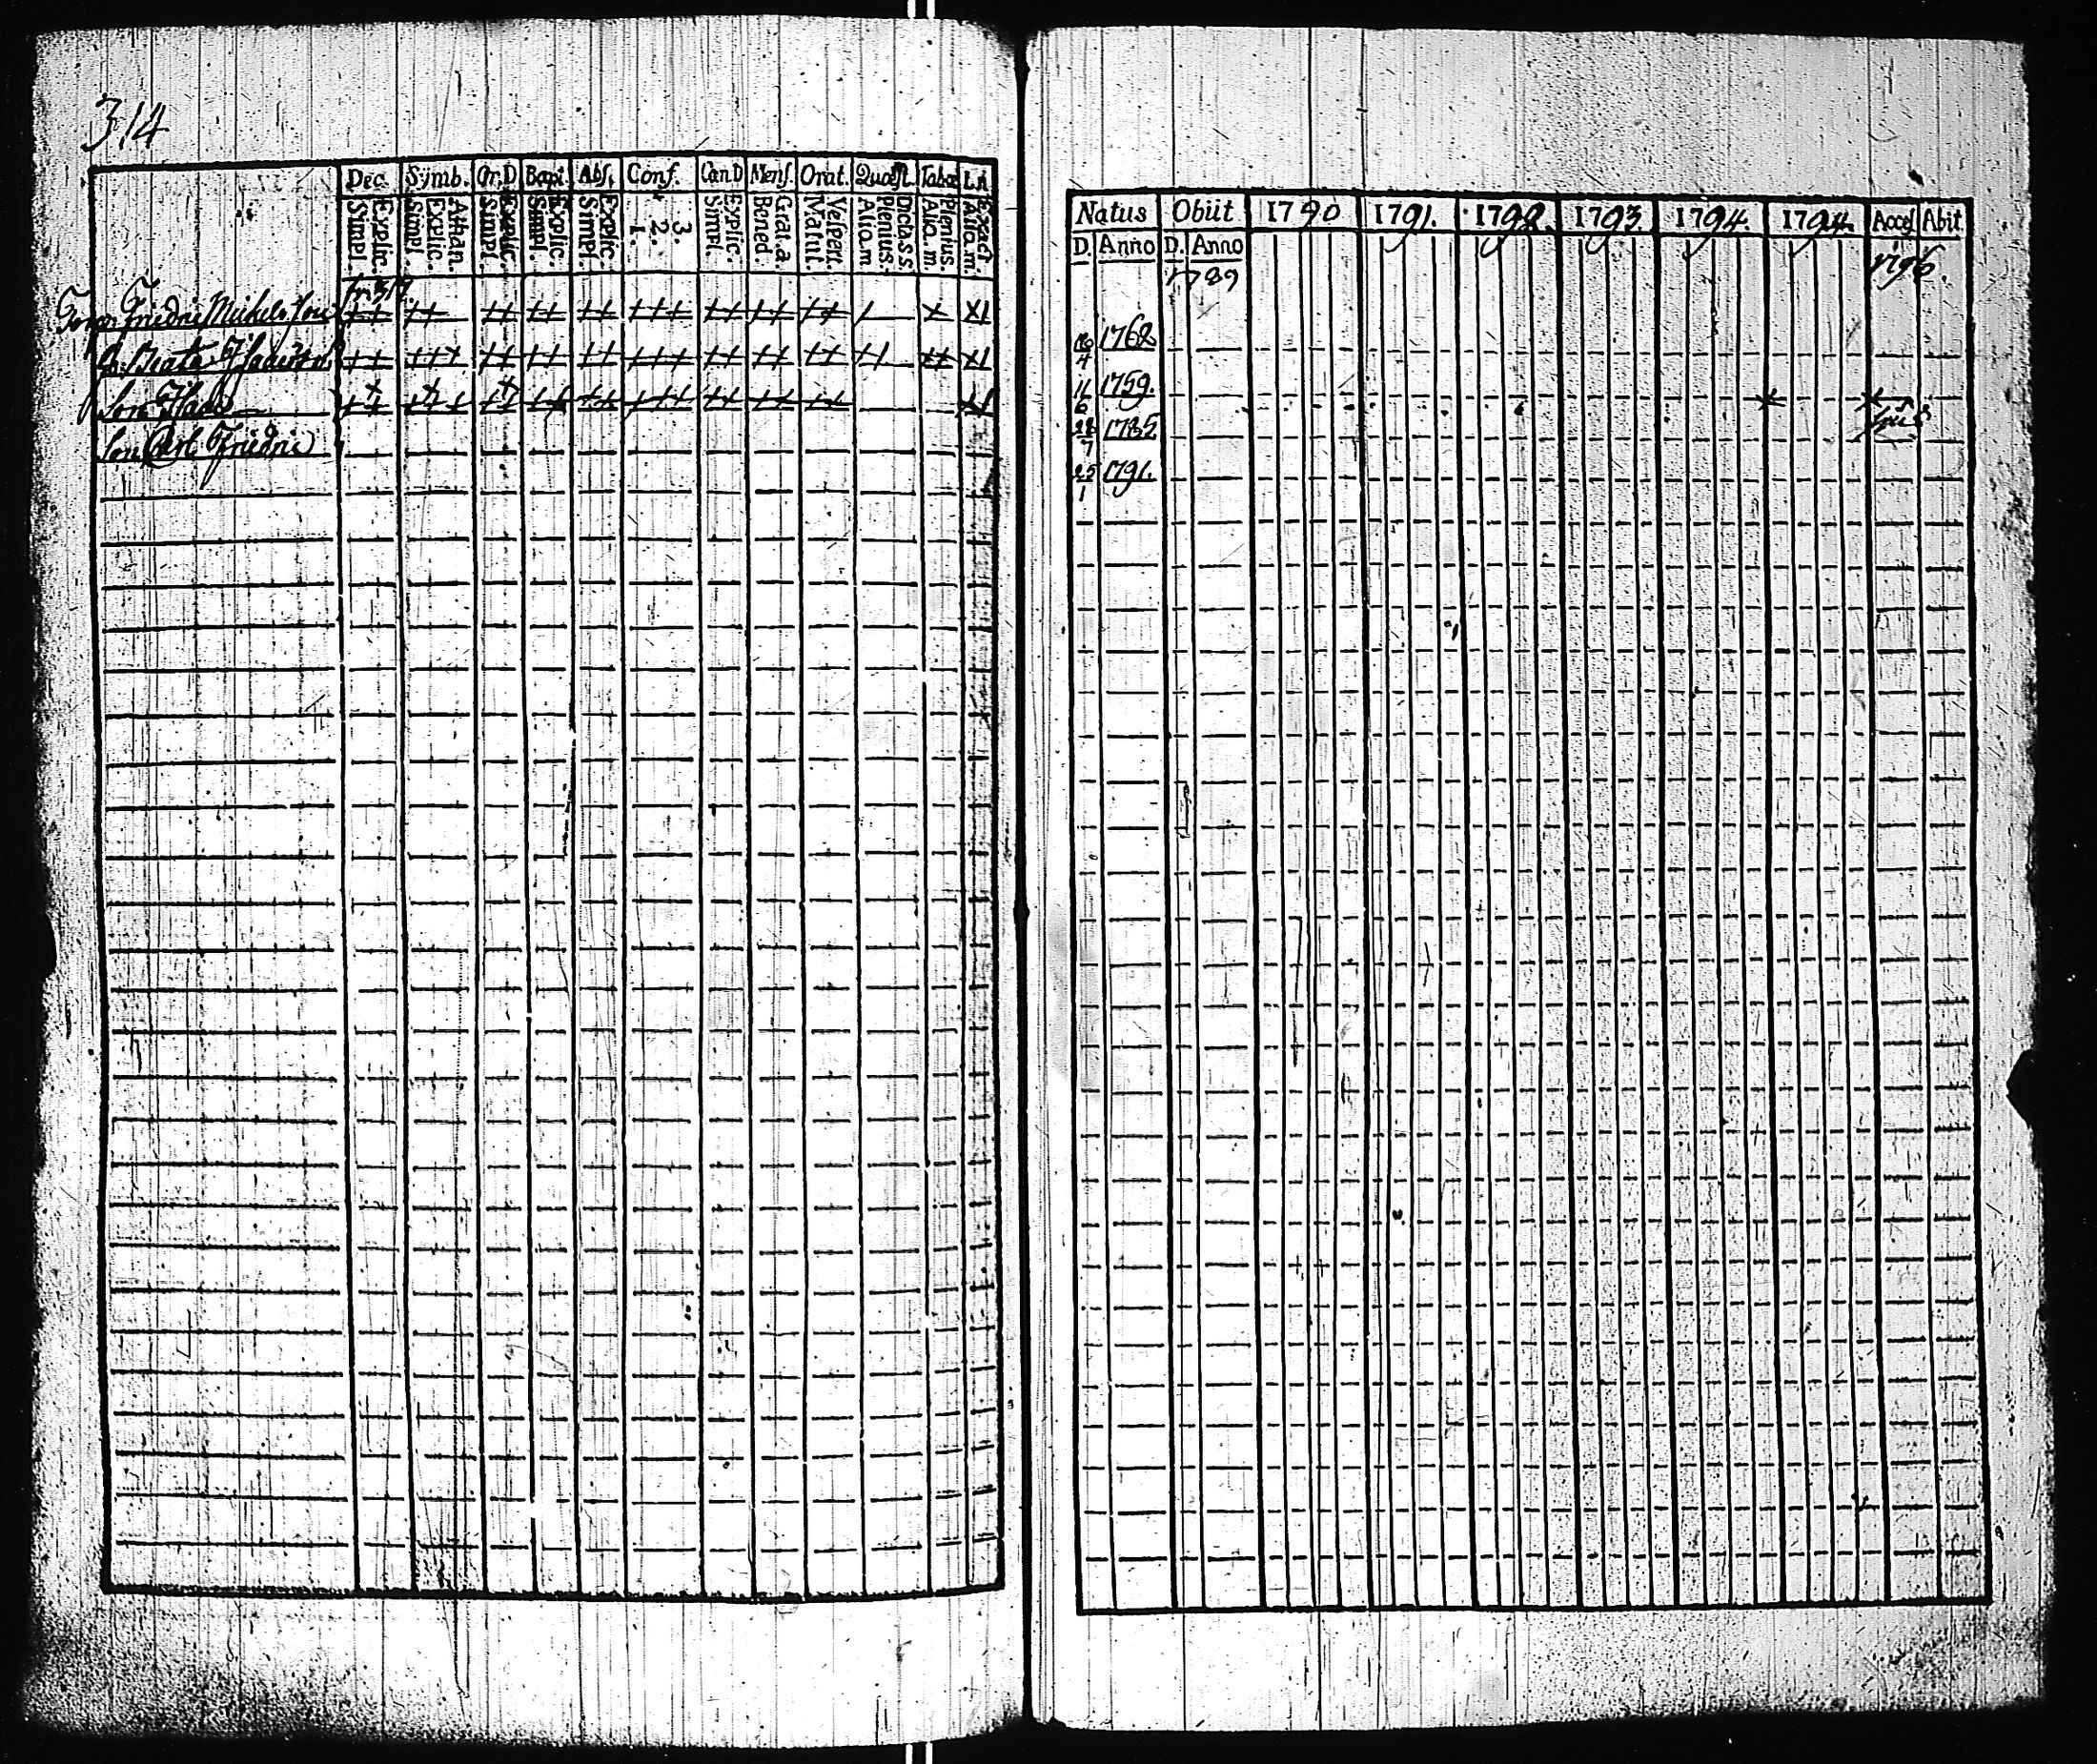 314
Dec. Symb. Or.D Bapt. Abs. Conf. Can D Mens. Orat. Quæst. Tabœ L.N
Simpl. Explic. Simpl. Explic. Athan. Simpl. Explic. Simpl. Explic. Simpl. Explic. 1. 2. 3. Simpl. Explic. Bened. Grat.a. Matut. Vespert. Alio.m Plenius. Dicta s s Alia.m. Plenius. Alia.m. Exact
Friedric Mickels
Beata
Son
Son Carl Friedric
Natus Obiit 1790 1791. 1792. 1793. 1794. 1794. Acces Abit
D. Anno D. Anno
1789 1796.
4 1762
11 6 1759.
28 7 1785
25 1 1791.